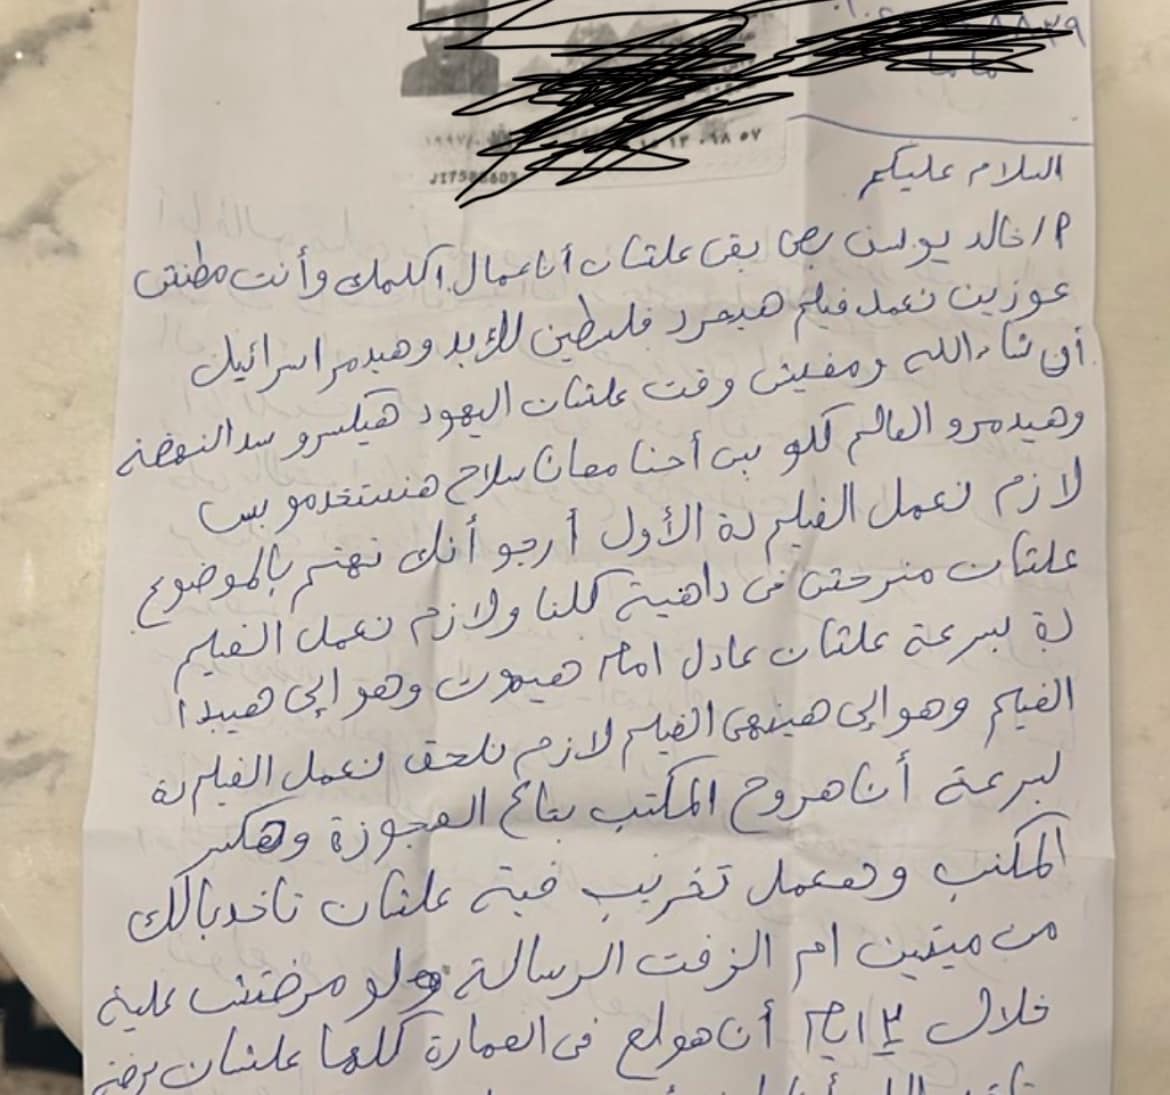 السلام عليكم
أ/خالد يوسف بص بقى علشان أنا عمال اكلمك وأنت مطنش
عوزين نعمل فيلم هيحرر فلسطين للأبد وهيدمر اسرائيل
أن شاء الله ومفيش وقت علشان اليهود هيكسرو سد النهضه
وهيدمرو العالم كلو بس أحنا معانا سلاح هنستخدمو بس
لازم نعمل الفيلم دة الأول أرجو أنك تهتم بالموضوع
علشان منرحش فى داهية كلنا ولازم نعمل الفيلم
دة بسرعة علشان عادل امام هيموت وهو إلى هيبدأ
الفيلم وهو إلى هينهى الفيلم لازم نلحق نعمل الفيلم دة
بسرعة أنا هروح المكتب بتاع العجوزة وهكسر
المكتب وهعمل تخريب فية علشان تاخد بالك
من ميتين ام الزفت الرسالة ولو مرضتش علية
خلال ٣ ايام أنا هولع فى العمارة كلها علشان